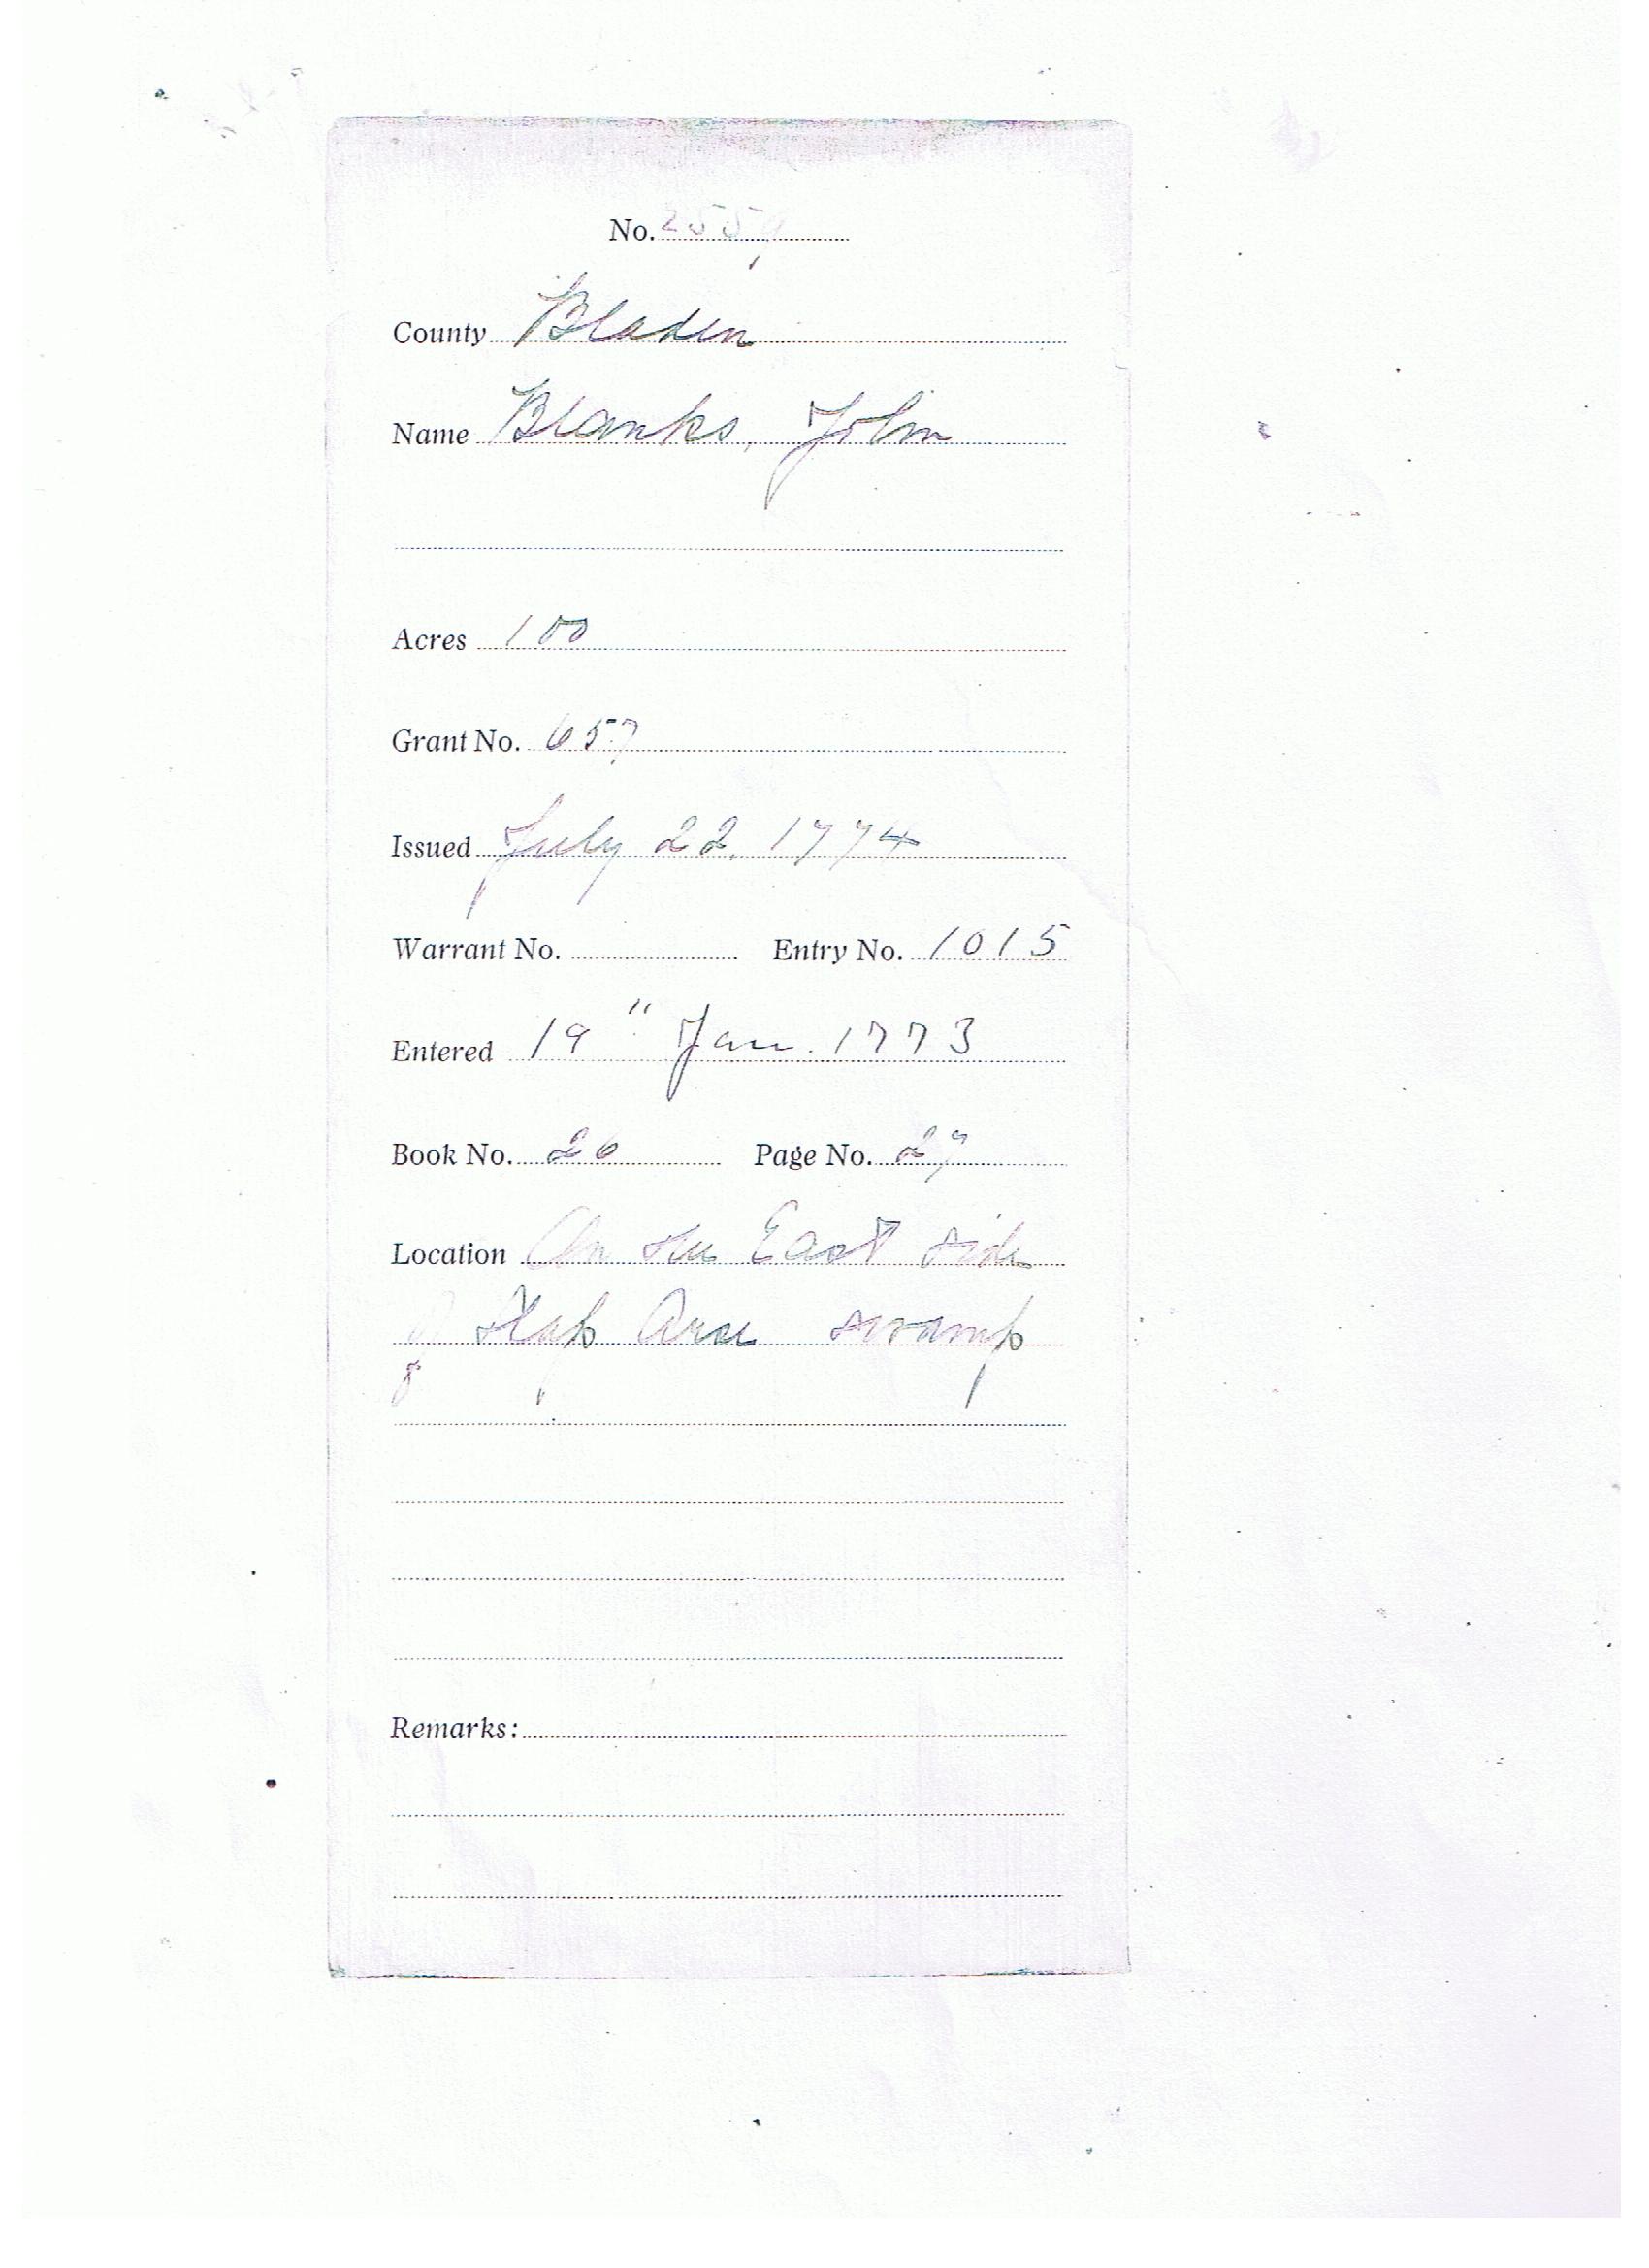 No. 2557
County Bladen
Name Blanks, John
Acres 100
Grant No. 657
Issued July 22. 1774
Warrant No. Entry No. 1015
Entered 19" Jan. 1773
Book No. 26 Page No. 27
Location On the East side
of Slap Arse swamp
Remarks: